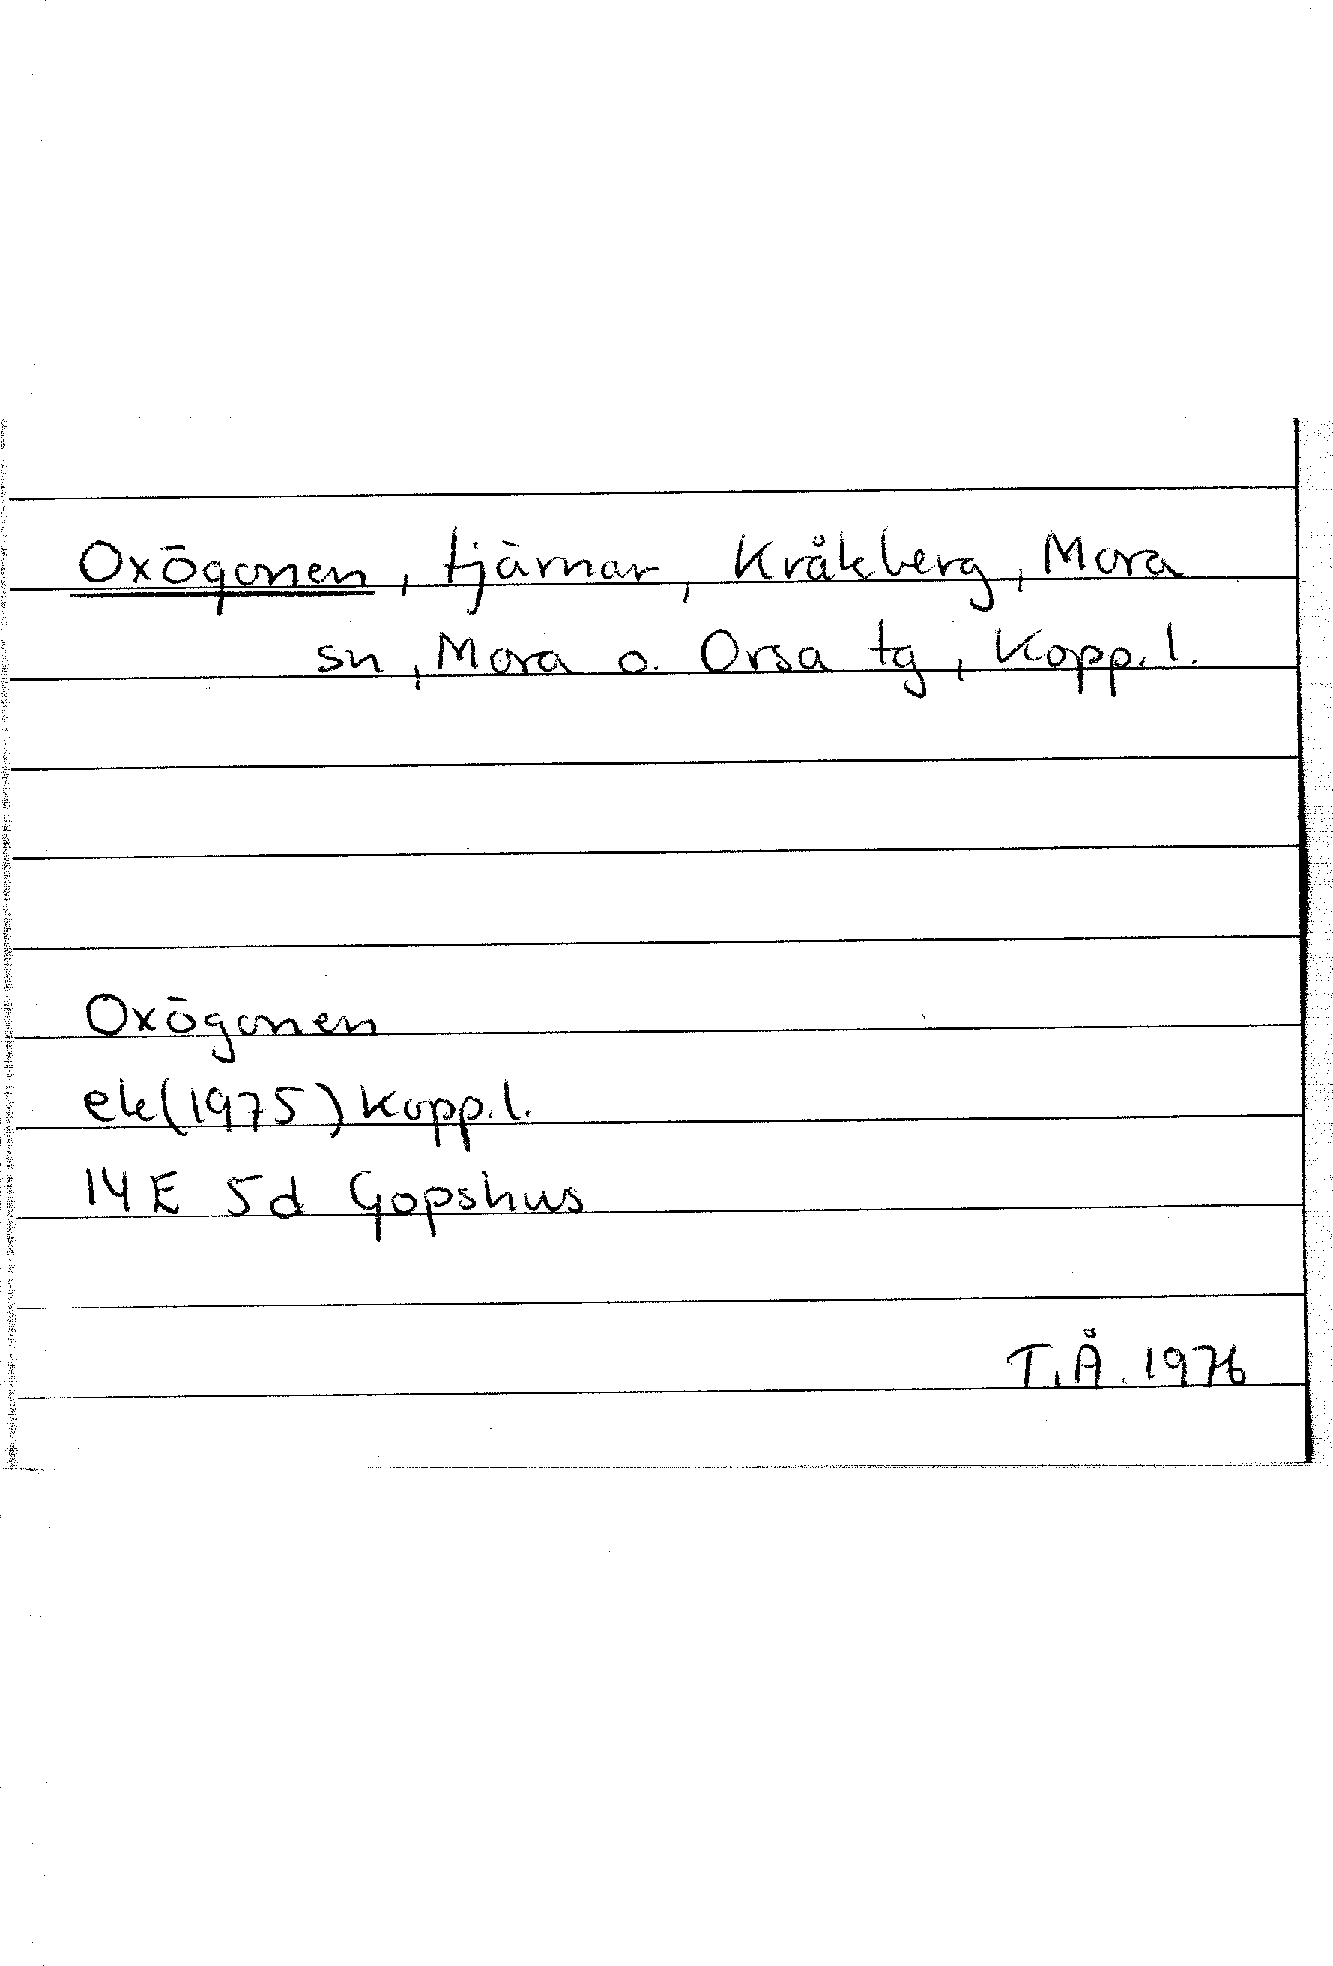 Oxögonen, tjärnar, Kråkberg, Mora
sn, Mora o. Orsa tg, Kopp. l.
Oxögonen
ek(1975) Kopp. l.
14E 5d Gopshus
T.Å. 1976